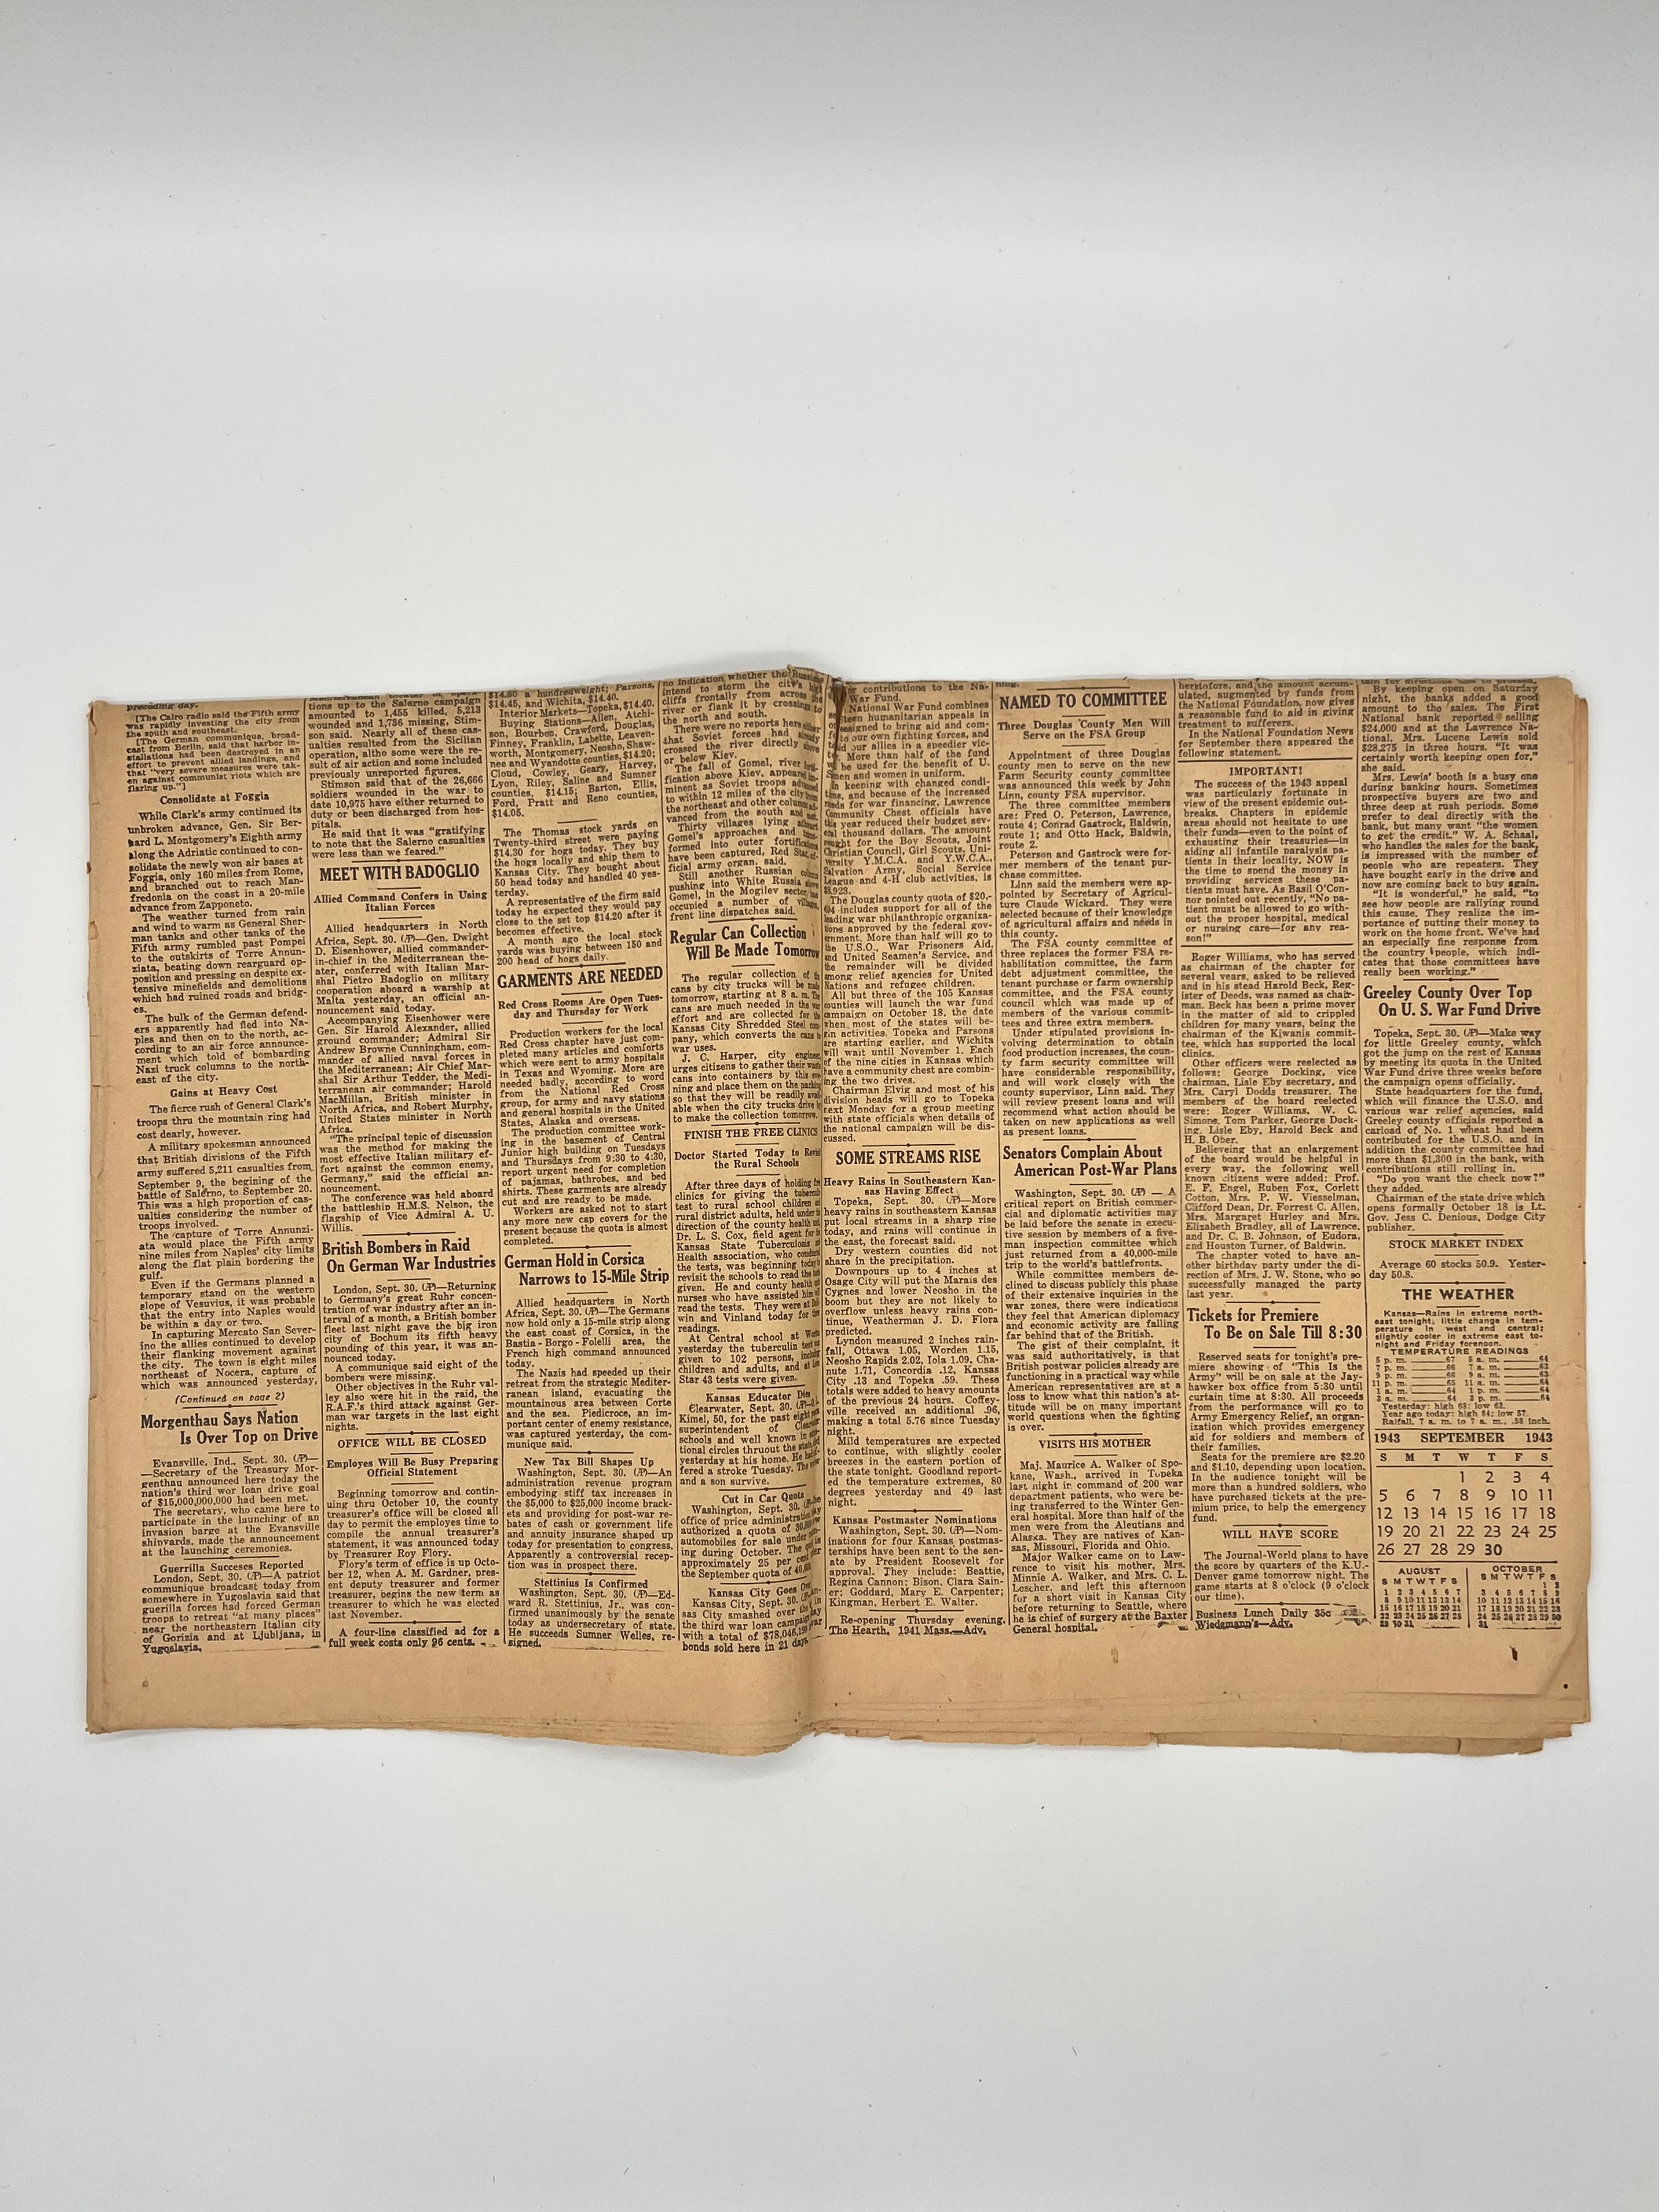 preceding day.
[The Cairo radio said the Fifth army
was rapidly investing the city from
the south and southeast.
[The German communique, broad-
cast from Berlin, said that harbor in-
stallations had been destroyed in an
effort to prevent allied landings, and
that "very severe measures were tak-
en against communist riots which are
flaring up."]
Consolidate at Foggia
While Clark's army continued its
unbroken advance, Gen. Sir Ber-
nard L. Montgomery's Eighth army
along the Adriatic continued to con-
solidate the newly won air bases at
Foggia, only 160 miles from Rome,
and branched out to reach Man-
fredonia on the coast in a 20-mile
advance from Zapponeto.
The weather turned from rain
and wind to warm as General Sher-
man tanks and other tanks of the
Fifth army rumbled past Pompei
to the outskirts of Torre Annun-
ziata, beating down rearguard op-
position and pressing on despite ex-
tensive minefields and demolitions
which had ruined roads and bridg-
es.
The bulk of the German defend-
ers apparently had fled into Na-
ples and then on to the north, ac-
cording to an air force announce-
ment which told of bombarding
Nazi truck columns to the north-
east of the city.
Gains at Heavy Cost
The fierce rush of General Clark's
troops thru the mountain ring had
cost dearly, however.
A military spokesman announced
that British divisions of the Fifth
army suffered 5,211 casualties from
September 9, the begining of the
battle of Salerno, to September 20.
This was a high proportion of cas-
ualties considering the number of
troops involved.
The capture of Torre Annunzi-
ata would place the Fifth army
nine miles from Naples' city limits
along the flat plain bordering the
gulf.
Even if the Germans planned a
temporary stand on the western
slope of Vesuvius, it was probable
that the entry into Naples would
be within a day or two.
In capturing Mercato San Sever-
ino the allies continued to develop
their flanking movement against
the city. The town is eight miles
northeast of Nocera, capture of
which was announced yesterday,
(Continued on page 2)
Morgenthau Says Nation
Is Over Top on Drive
Evansville, Ind., Sept. 30. (AP)—
—Secretary of the Treasury Mor-
genthau announced here today the
nation's third war loan drive goal
of $15,000,000,000 had been met.
The secretary, who came here to
participate in the launching of an
invasion barge at the Evansville
shipyards, made the announcement
at the launching ceremonies.
Guerrilla Succeses Reported
London, Sept. 30. (AP)—A patriot
communique broadcast today from
somewhere in Yugoslavia said that
guerrilla forces had forced German
troops to retreat "at many places"
near the northeastern Italian city
of Gorizia and at Ljubljana, in
Yugoslavia.
tions up to the Salerno campaign
amounted to 1,455 killed, 5,213
wounded and 1,736 missing, Stim-
son said. Nearly all of these cas-
ualties resulted from the Sicilian
operation, altho some were the re-
sult of air action and some included
previously unreported figures.
Stimson said that of the 26,666
soldiers wounded in the war to
date 10,975 have either returned to
duty or been discharged from hos-
pitals.
He said that it was "gratifying
to note that the Salerno casualties
were less than we feared."
MEET WITH BADOGLIO
Allied Command Confers in Using
Italian Forces
Allied headquarters in North
Africa, Sept. 30. (AP)—Gen. Dwight
D. Eisenhower, allied commander-
in-chief in the Mediterranean the-
ater, conferred with Italian Mar-
shal Pietro Badoglio on military
cooperation aboard a warship at
Malta yesterday, an official an-
nouncement said today.
Accompanying Eisenhower were
Gen. Sir Harold Alexander, allied
ground commander; Admiral Sir
Andrew Browne Cunningham, com-
mander of allied naval forces in
the Mediterranean; Air Chief Mar-
shal Sir Arthur Tedder, the Medi-
terranean air commander; Harold
MacMillan, British minister in
North Africa, and Robert Murphy,
United States minister in North
Africa.
"The principal topic of discussion
was the method for making the
most effective Italian military ef-
fort against the common enemy,
Germany," said the official an-
nouncement.
The conference was held aboard
the battleship H.M.S. Nelson, the
flagship of Vice Admiral A. U.
Willis.
British Bombers in Raid
On German War Industries
London, Sept. 30. (AP)—Returning
to Germany's great Ruhr concen-
tration of war industry after an in-
terval of a month, a British bomber
fleet last night gave the big iron
city of Bochum its fifth heavy
pounding of this year, it was an-
nounced today.
A communique said eight of the
bombers were missing.
Other objectives in the Ruhr val-
ley also were hit in the raid, the
R.A.F.'s third attack against Ger-
man war targets in the last eight
nights.
OFFICE WILL BE CLOSED
Employes Will Be Busy Preparing
Official Statement
Beginning tomorrow and contin-
uing thru October 10, the county
treasurer's office will be closed all
day to permit the employes time to
compile the annual treasurer's
statement, it was announced today
by Treasurer Roy Flory.
Flory's term of office is up Octo-
ber 12, when A. M. Gardner, pres-
ent deputy treasurer and former
treasurer, begins the new term as
treasurer to which he was elected
last November.
A four-line classified ad for a
full week costs only 96 cents.
$14.60 a hundredweight; Parsons,
$14.45, and Wichita, $14.40.
Interior Markets—Topeka, $14.40.
Buying Stations—Allen, Atchi-
son, Bourbon, Crawford, Douglas,
Finney, Franklin, Labette, Leaven-
worth, Montgomery, Neosho, Shaw-
nee and Wyandotte counties, $14.20;
Cloud, Cowley, Geary, Harvey,
Lyon, Riley, Saline and Sumner
counties, $14.15; Barton, Ellis,
Ford, Pratt and Reno counties,
$14.05.
The Thomas stock yards on
Twenty-third street were paying
$14.30 for hogs today. They buy
the hogs locally and ship them to
Kansas City. They bought about
50 head today and handled 40 yes-
terday.
A representative of the firm said
today he expected they would pay
close to the set top $14.20 after it
becomes effective.
A month ago the local stock
yards was buying between 150 and
200 head of hogs daily.
GARMENTS ARE NEEDED
Red Cross Rooms Are Open Tues-
day and Thursday for Work
Production workers for the local
Red Cross chapter have just com-
pleted many articles and comforts
which were sent to army hospitals
in Texas and Wyoming. More are
needed badly, according to word
from the National Red Cross
group, for army and navy stations
and general hospitals in the United
States, Alaska and overseas.
The production committee work-
ing in the basement of Central
Junior high building on Tuesdays
and Thursdays from 9:30 to 4:30,
report urgent need for completion
of pajamas, bathrobes, and bed
shirts. These garments are already
cut and ready to be made.
Workers are asked not to start
any more new cap covers for the
present because the quota is almost
completed.
German Hold in Corsica
Narrows to 15-Mile Strip
Allied headquarters in North
Africa, Sept. 30. (AP)—The Germans
now hold only a 15-mile strip along
the east coast of Corsica, in the
Bastia - Borgo - Folelli area, the
French high command announced
today.
The Nazis had speeded up their
retreat from the strategic Mediter-
ranean island, evacuating the
mountainous area between Corte
and the sea. Piedicroce, an im-
portant center of enemy resistance,
was captured yesterday, the com-
munique said.
New Tax Bill Shapes Up
Washington, Sept. 30. (AP)—An
administration revenue program
embodying stiff tax increases in
the $5,000 to $25,000 income brack-
ets and providing for post-war re-
bates of cash or government life
and annuity insurance shaped up
today for presentation to congress.
Apparently a controversial recep-
tion was in prospect there.
Stettinius Is Confirmed
Washington, Sept. 30. (AP)—Ed-
ward R. Stettinius, Jr., was con-
firmed unanimously by the senate
today as undersecretary of state.
He succeeds Sumner Welles, re-
signed.
no indication whether the Russians
intend to storm the city's high
cliffs frontally from across the
river or flank it by crossings to
the north and south.
There were no reports here either
that Soviet forces had already
crossed the river directly above
or below Kiev.
The fall of Gomel, river forti-
fication above Kiev, appeared im-
minent as Soviet troops advanced
to within 12 miles of the city from
the northeast and other columns ad-
vanced from the south and
Thirty villages lying athwart
Gomel's approaches and
formed into outer fortifications
have been captured, Red Star, of-
ficial army organ, said.
Still another Russian column
pushing into White Russia above
Gomel, in the Mogilev sector,
occupied a number of villages,
front line dispatches said.
Regular Can Collection
Will Be Made Tomorrow
The regular collection of tin
cans by city trucks will be made
tomorrow, starting at 8 a. m. The
cans are much needed in the war
effort and are collected for the
Kansas City Shredded Steel com-
pany, which converts the cans to
war uses.
J. C. Harper, city engineer,
urges citizens to gather their waste
cans into containers by this eve-
ning and place them on the parking
so that they will be readily avail-
able when the city trucks drive by
to make the collection tomorrow.
FINISH THE FREE CLINICS
Doctor Started Today to Revisit
the Rural Schools
After three days of holding
clinics for giving the tuberculin
test to rural school children and
rural district adults, held under the
direction of the county health unit,
Dr. L. S. Cox, field agent for the
Kansas State Tuberculosis and
Health association, who conducted
the tests, was beginning today to
revisit the schools to read the tests
given. He and county health
nurses who have assisted him will
read the tests. They were at Bald-
win and Vinland today for the
readings.
At Central school at
yesterday the tuberculin test was
given to 102 persons, including
children and adults, and at Lone
Star 43 tests were given.
Kansas Educator Dies
Clearwater, Sept. 30. (AP)—
Kimel, 50, for the past eight years
superintendent of Clearwater
schools and well known in educa-
tional circles thruout the state, died
yesterday at his home. He had suf-
fered a stroke Tuesday. The widow
and a son survive.
Cut in Car Quota
Washington, Sept. 30. (AP)—The
office of price administration today
authorized a quota of
automobiles for sale under ration-
ing during October. The quota is
approximately 25 per cent under
the September quota of
Kansas City Goes Over
Kansas City, Sept. 30. (AP)—Kan-
sas City smashed over the top in
the third war loan campaign today
with a total of $78,046,199 war
bonds sold here in 21 days.
contributions to the Na-
War Fund.
National War Fund combines
teen humanitarian appeals in
designed to bring aid and com-
to our own fighting forces, and
our allies in a speedier vic-
More than half of the fund
be used for the benefit of U.
men and women in uniform.
In keeping with changed condi-
tions, and because of the increased
needs for war financing, Lawrence
Community Chest officials have
this year reduced their budget sev-
eral thousand dollars. The amount
sought for the Boy Scouts, Joint
Christian Council, Girl Scouts, Uni-
versity Y.M.C.A. and Y.W.C.A.,
Salvation Army, Social Service
League and 4-H club activities, is
$8,923.
The Douglas county quota of $20,-
includes support for all of the
leading war philanthropic organiza-
tions approved by the federal gov-
ernment. More than half will go to
the U.S.O., War Prisoners Aid,
and United Seamen's Service, and
the remainder will be divided
among relief agencies for United
Nations and refugee children.
All but three of the 105 Kansas
counties will launch the war fund
campaign on October 18, the date
when most of the states will be-
gin activities. Topeka and Parsons
are starting earlier, and Wichita
will wait until November 1. Each
of the nine cities in Kansas which
have a community chest are combin-
ing the two drives.
Chairman Elvig and most of his
division heads will go to Topeka
next Monday for a group meeting
with state officials when details of
the national campaign will be dis-
cussed.
SOME STREAMS RISE
Heavy Rains in Southeastern Kan-
sas Having Effect
Topeka, Sept. 30. (AP)—More
heavy rains in southeastern Kansas
put local streams in a sharp rise
today, and rains will continue in
the east, the forecast said.
Dry western counties did not
share in the precipitation.
Downpours up to 4 inches at
Osage City will put the Marais des
Cygnes and lower Neosho in the
boom but they are not likely to
overflow unless heavy rains con-
tinue, Weatherman J. D. Flora
predicted.
Lyndon measured 2 inches rain-
fall, Ottawa 1.05, Worden 1.15,
Neosho Rapids 2.02, Iola 1.09, Cha-
nute 1.71, Concordia .12, Kansas
City .13 and Topeka .59. These
totals were added to heavy amounts
of the previous 24 hours. Coffey-
ville received an additional .96,
making a total 5.76 since Tuesday
night.
Mild temperatures are expected
to continue, with slightly cooler
breezes in the eastern portion of
the state tonight. Goodland report-
ed the temperature extremes, 80
degrees yesterday and 49 last
night.
Kansas Postmaster Nominations
Washington, Sept. 30. (AP)—Nom-
inations for four Kansas postmas-
terships have been sent to the sen-
ate by President Roosevelt for
approval. They include: Beattie,
Regina Cannon; Bison, Clara Sain-
er; Goddard, Mary E. Carpenter;
Kingman, Herbert E. Walter.
Re-opening Thursday evening.
The Hearth, 1941 Mass.—Adv.
ning.
NAMED TO COMMITTEE
Three Douglas County Men Will
Serve on the FSA Group
Appointment of three Douglas
county men to serve on the new
Farm Security county committee
was announced this week by John
Linn, county FSA supervisor.
The three committee members
are: Fred O. Peterson, Lawrence,
route 4; Conrad Gastrock, Baldwin,
route 1; and Otto Hack, Baldwin,
route 2.
Peterson and Gastrock were for-
mer members of the tenant pur-
chase committee.
Linn said the members were ap-
pointed by Secretary of Agricul-
ture Claude Wickard. They were
selected because of their knowledge
of agricultural affairs and needs in
this county.
The FSA county committee of
three replaces the former FSA re-
habilitation committee, the farm
debt adjustment committee, the
tenant purchase or farm ownership
committee, and the FSA county
council which was made up of
members of the various commit-
tees and three extra members.
Under stipulated provisions in-
volving determination to obtain
food production increases, the coun-
ty farm security committee will
have considerable responsibility,
and will work closely with the
county supervisor, Linn said. They
will review present loans and will
recommend what action should be
taken on new applications as well
as present loans.
Senators Complain About
American Post-War Plans
Washington, Sept. 30. (AP) — A
critical report on British commer-
cial and diplomatic activities may
be laid before the senate in execu-
tive session by members of a five-
man inspection committee which
just returned from a 40,000-mile
trip to the world's battlefronts.
While committee members de-
clined to discuss publicly this phase
of their extensive inquiries in the
war zones, there were indications
they feel that American diplomacy
and economic activity are falling
far behind that of the British.
The gist of their complaint, it
was said authoritatively, is that
British postwar policies already are
functioning in a practical way while
American representatives are at a
loss to know what this nation's at-
titude will be on many important
world questions when the fighting
is over.
VISITS HIS MOTHER
Maj. Maurice A. Walker of Spo-
kane, Wash., arrived in Topeka
last night in command of 200 war
department patients, who were be-
ing transferred to the Winter Gen-
eral hospital. More than half of the
men were from the Aleutians and
Alaska. They are natives of Kan-
sas, Missouri, Florida and Ohio.
Major Walker came on to Law-
rence to visit his mother, Mrs.
Minnie A. Walker, and Mrs. C. L.
Lescher, and left this afternoon
for a short visit in Kansas City
before returning to Seattle, where
he is chief of surgery at the Baxter
General hospital.
heretofore, and the amount accum-
ulated, augmented by funds from
the National Foundation, now gives
a reasonable fund to aid in giving
treatment to sufferers.
In the National Foundation News
for September there appeared the
following statement.
IMPORTANT!
The success of the 1943 appeal
was particularly fortunate in
view of the present epidemic out-
breaks. Chapters in epidemic
areas should not hesitate to use
their funds—even to the point of
exhausting their treasuries—in
aiding all infantile paralysis pa-
tients in their locality. NOW is
the time to spend the money in
providing services these pa-
tients must have. As Basil O'Con-
nor pointed out recently, "No pa-
tient must be allowed to go with-
out the proper hospital, medical
or nursing care—for any rea-
son!"
Roger Williams, who has served
as chairman of the chapter for
several years, asked to be relieved
and in his stead Harold Beck, Reg-
ister of Deeds, was named as chair-
man. Beck has been a prime mover
in the matter of aid to crippled
children for many years, being the
chairman of the Kiwanis commit-
tee, which has supported the local
clinics.
Other officers were reelected as
follows: George Docking, vice
chairman, Lisle Eby secretary, and
Mrs. Caryl Dodds treasurer. The
members of the board reelected
were: Roger Williams, W. C.
Simons, Tom Parker, George Dock-
ing, Lisle Eby, Harold Beck and
H. B. Ober.
Believeing that an enlargement
of the board would be helpful in
every way, the following well
known citizens were added: Prof.
E. F. Engel, Ruben Fox, Corlett
Cotton, Mrs. P. W. Viesselman,
Clifford Dean, Dr. Forrest C. Allen,
Mrs. Margaret Hurley and Mrs.
Elizabeth Bradley, all of Lawrence,
and Dr. C. B. Johnson, of Eudora,
and Houston Turner, of Baldwin.
The chapter voted to have an-
other birthday party under the di-
rection of Mrs. J. W. Stone, who so
successfully managed the party
last year.
Tickets for Premiere
To Be on Sale Till 8:30
Reserved seats for tonight's pre-
miere showing of "This Is the
Army" will be on sale at the Jay-
hawker box office from 5:30 until
curtain time at 8:30. All proceeds
from the performance will go to
Army Emergency Relief, an organ-
ization which provides emergency
aid for soldiers and members of
their families.
Seats for the premiere are $2.20
and $1.10, depending upon location.
In the audience tonight will be
more than a hundred soldiers, who
have purchased tickets at the pre-
mium price, to help the emergency
fund.
WILL HAVE SCORE
The Journal-World plans to have
the score by quarters of the K.U.-
Denver game tomorrow night. The
game starts at 8 o'clock (9 o'clock
our time).
Business Lunch Daily 35c
Wiedemann's—Adv.
By keeping open on Saturday
night, the banks added a good
amount to the sales. The First
National bank reported selling
$24,000 and at the Lawrence Na-
tional, Mrs. Lucene Lewis sold
$28,275 in three hours. "It was
certainly worth keeping open for,"
she said.
Mrs. Lewis' booth is a busy one
during banking hours. Sometimes
prospective buyers are two and
three deep at rush periods. Some
prefer to deal directly with the
bank, but many want "the women
to get the credit." W. A. Schaal,
who handles the sales for the bank,
is impressed with the number of
people who are repeaters. They
have bought early in the drive and
now are coming back to buy again.
"It is wonderful," he said, "to
see how people are rallying round
this cause. They realize the im-
portance of putting their money to
work on the home front. We've had
an especially fine response from
the country people, which indi-
cates that those committees have
really been working."
Greeley County Over Top
On U. S. War Fund Drive
Topeka, Sept. 30. (AP)—Make way
for little Greeley county, which
got the jump on the rest of Kansas
by meeting its quota in the United
War Fund drive three weeks before
the campaign opens officially.
State headquarters of the fund,
which will finance the U.S.O. and
various war relief agencies, said
Greeley county officials reported a
carload of No. 1 wheat had been
contributed for the U.S.O. and in
addition the county committee had
more than $1,300 in the bank, with
contributions still rolling in.
"Do you want the check now?"
they added.
Chairman of the state drive which
opens formally October 18 is Lt.
Gov. Jess C. Denious, Dodge City
publisher.
STOCK MARKET INDEX
Average 60 stocks 50.9. Yester-
day 50.8.
THE WEATHER
Kansas—Rains in extreme north-
east tonight; little change in tem-
perature in west and central;
slightly cooler in extreme east to-
night and Friday forenoon.
TEMPERATURE READINGS
5 p. m. 67 5 a. m. 64
7 p. m. 66 7 a. m. 63
9 p. m. 66 9 a. m. 63
11 p. m. 65 11 a. m. 64
1 a. m. 64 1 p. m. 64
3 a. m. 64 3 p. m. 64
Yesterday: high 68; low 62.
Year ago today: high 84; low 57.
Rainfall, 7 a. m. to 7 a. m., .58 inch.
1943 SEPTEMBER 1943
S M T W T F S
1 2 3 4
5 6 7 8 9 10 11
12 13 14 15 16 17 18
19 20 21 22 23 24 25
26 27 28 29 30
AUGUST
S M T W T F S
1 2 3 4 5 6 7
8 9 10 11 12 13 14
15 16 17 18 19 20 21
22 23 24 25 26 27 28
29 30 31
OCTOBER
S M T W T F S
1 2
3 4 5 6 7 8 9
10 11 12 13 14 15 16
17 18 19 20 21 22 23
24 25 26 27 28 29 30
31